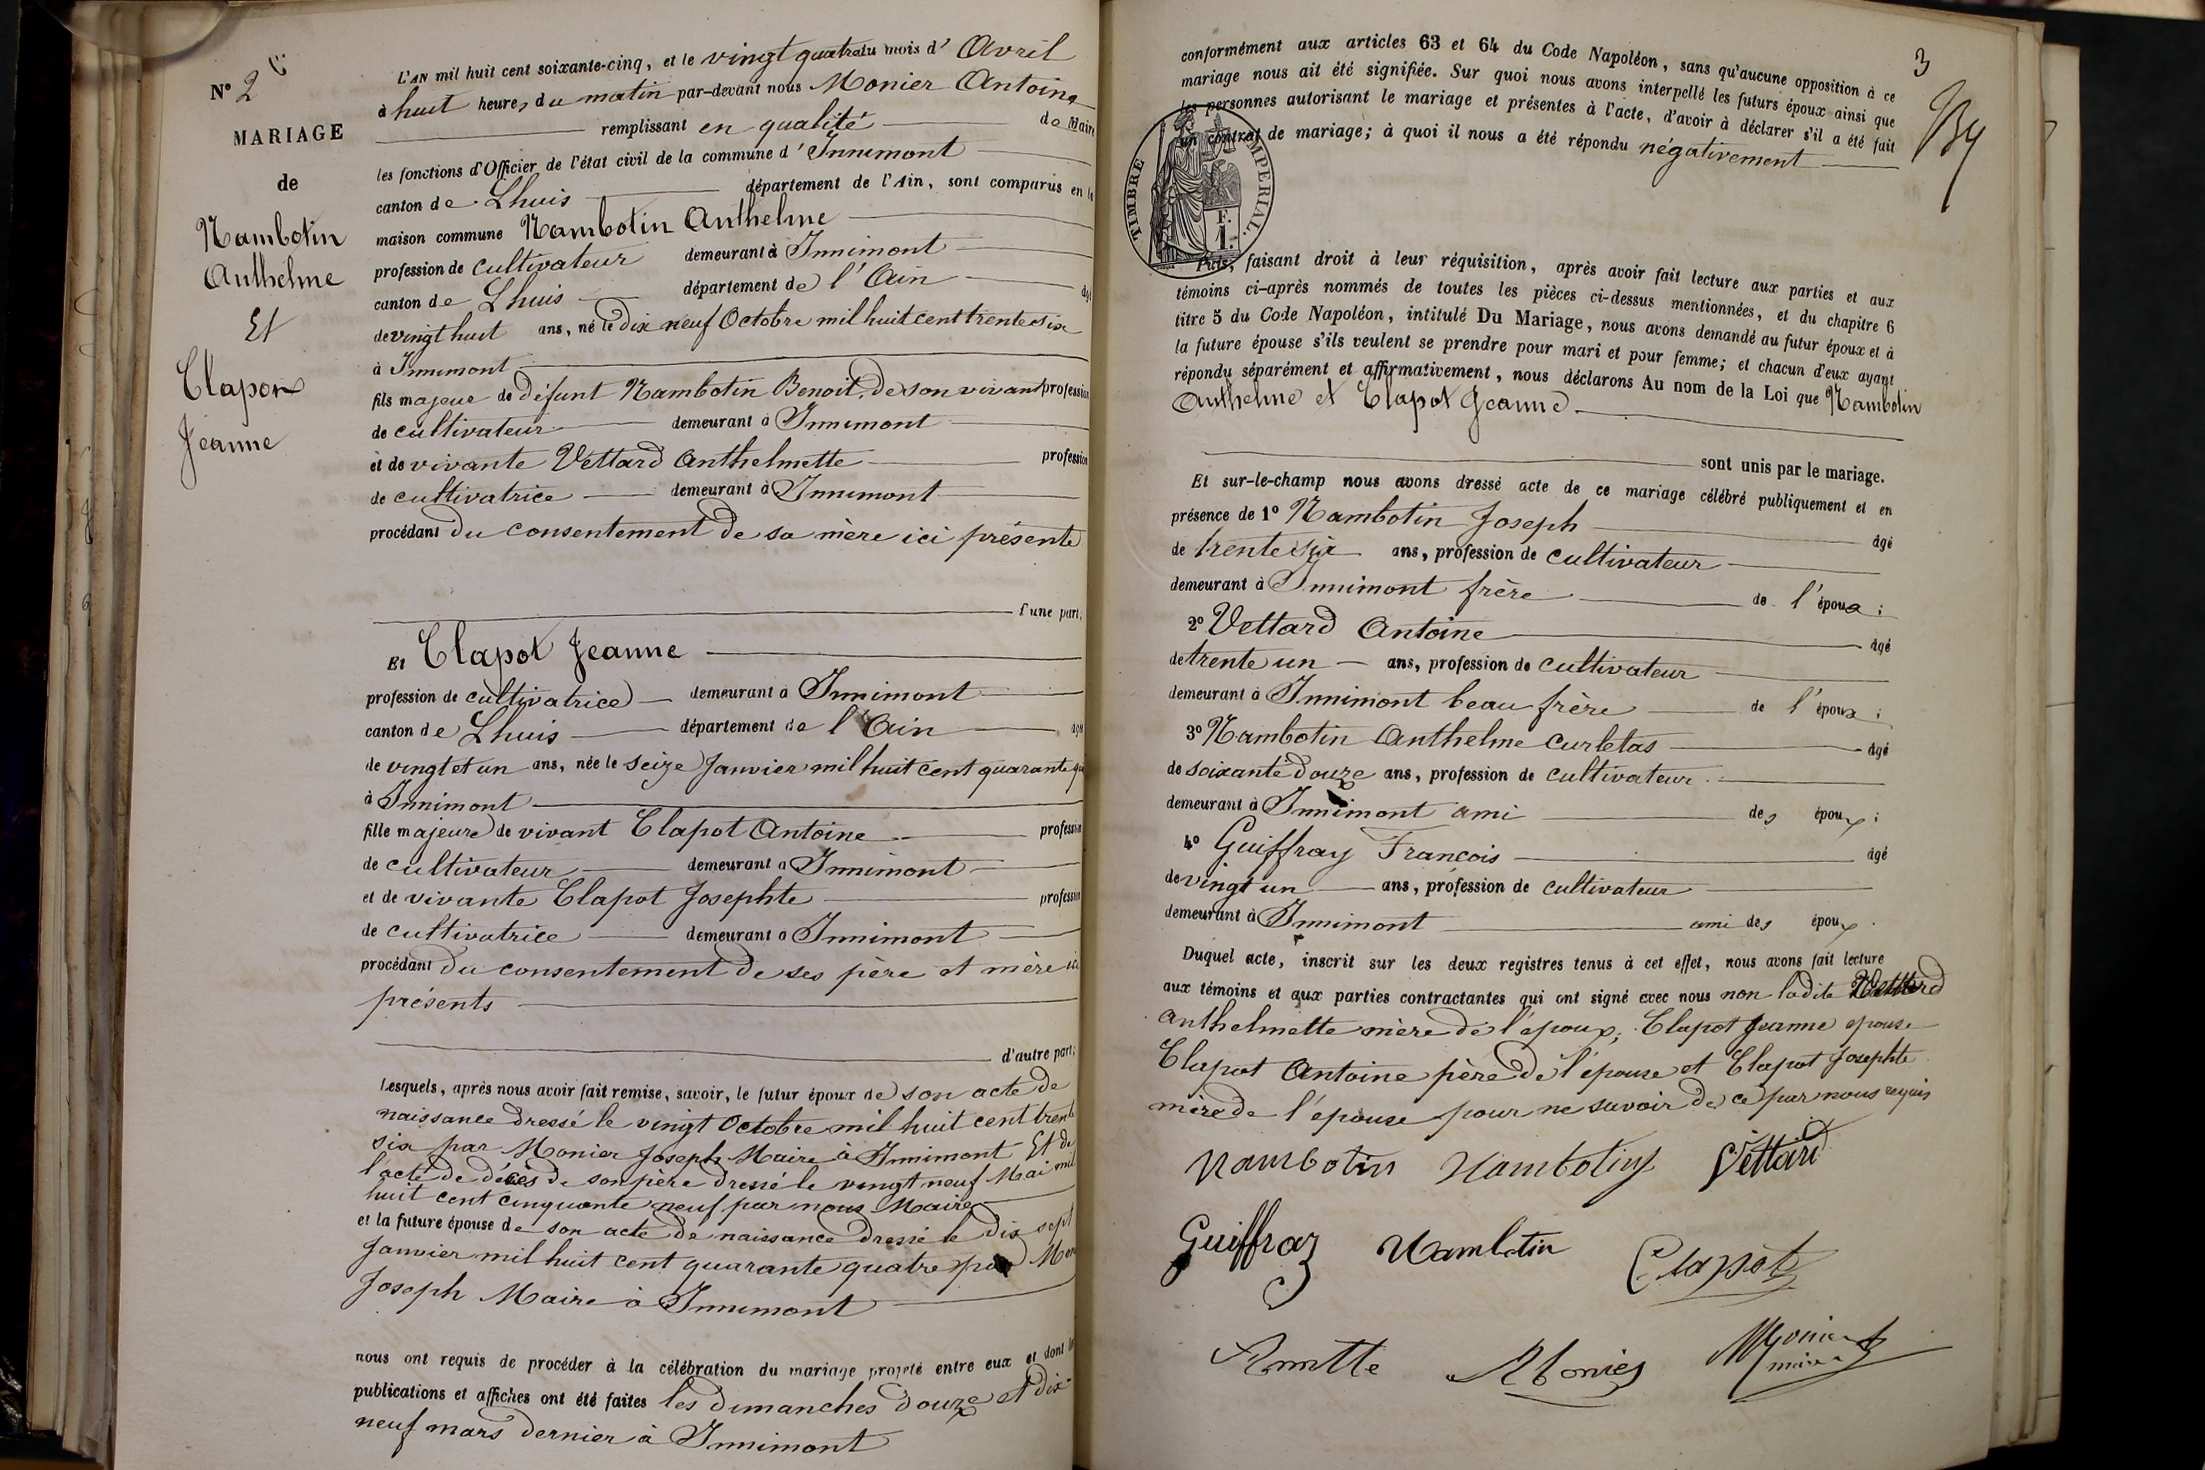 N° 2
MARIAGE
de
Nambotin
Anthelme
Et
Clapon
Jeanne
L'AN mil huit cent soixante-cinq, et le vingt quatre du mois d' Avril
à huit heures du matin par-devant nous Monier Antoine
remplissant en qualité de Maire
les fonctions d'Officier de l'état civil de la commune d' Innimont
canton de Lhuis département de l'Ain, sont comparus en la
maison commune Nambotin Anthelme
profession de cultivateur demeurant à Innimont
canton de Lhuis département de l'Ain âgé
de vingt huit ans, né le dix neuf Octobre mil huit cent trente six
à Innimont
fils majeur de défunt Nambotin Benoit, de son vivant profession
de cultivateur demeurant à Innimont
et de vivante Vettard Anthelmette profession
de cultivatrice demeurant à Innimont
procédant du consentement de sa mère ici présente
d'une part,
Et Clapot Jeanne
profession de cultivatrice demeurant à Innimont
canton de Lhuis département de l'Ain âgée
de vingt et un ans, née le seize Janvier mil huit cent quarante
à Innimont
fille majeure de vivant Clapot Antoine profession
de cultivateur demeurant à Innimont
et de vivante Clapot Josephte profession
de cultivatrice demeurant à Innimont
procédant du consentement de ses père et mère ici
présents
d'autre part;
Lesquels, après nous avoir fait remise, savoir, le futur époux de son acte de
naissance dressé le vingt Octobre mil huit cent trente
six par Monier Joseph Maire à Innimont Et de
l'acte de décès de son père dressé le vingt neuf Mai mil
huit cent cinquante neuf par nous Maire
et la future épouse de son acte de naissance dressé le dix sept
Janvier mil huit cent quarante quatre par Mon
Joseph Maire à Innimont
nous ont requis de procéder à la célébration du mariage projeté entre eux et dont les
publications et affiches ont été faites les dimanches douze et dix
neuf mars dernier à Innimont
3
conformément aux articles 63 et 64 du Code Napoléon, sans qu'aucune opposition à ce
mariage nous ait été signifiée. Sur quoi nous avons interpellé les futurs époux ainsi que
les personnes autorisant le mariage et présentes à l'acte, d'avoir à déclarer s'il a été fait
un contrat de mariage; à quoi il nous a été répondu négativement
TIMBRE IMPERIAL.
1 F.
Puis, faisant droit à leur réquisition, après avoir fait lecture aux parties et aux
témoins ci-après nommés de toutes les pièces ci-dessus mentionnées, et du chapitre 6
titre 5 du Code Napoléon, intitulé Du Mariage, nous avons demandé au futur époux et à
la future épouse s'ils veulent se prendre pour mari et pour femme; et chacun d'eux ayant
répondu séparément et affirmativement, nous déclarons Au nom de la Loi que Nambotin
Anthelme et Clapot Jeanne
sont unis par le mariage.
Et sur-le-champ nous avons dressé acte de ce mariage célébré publiquement et en
présence de 1° Nambotin Joseph âgé
de trente six ans, profession de cultivateur
demeurant à Innimont frère de l'époux;
2° Vettard Antoine âgé
de trente un ans, profession de cultivateur
demeurant à Innimont beau frère de l'époux;
3° Nambotin Anthelme Curletas âgé
de soixante douze ans, profession de cultivateur
demeurant à Innimont ami des époux;
4° Guiffray François âgé
de vingt un ans, profession de cultivateur
demeurant à Innimont ami des époux.
Duquel acte, inscrit sur les deux registres tenus à cet effet, nous avons fait lecture
aux témoins et aux parties contractantes qui ont signé avec nous non ladite Vettard
Anthelmette mère de l'époux; Clapot Jeanne épouse
Clapot Antoine père de l'épouse et Clapot Josephte
mère de l'épouse pour ne savoir de ce par nous requis
Nambotin Nambotin Vettard
Guiffray Nambotin Clapot
Monier Monier
maire